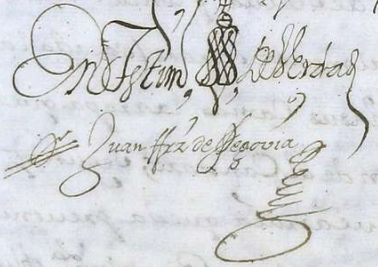 En testim° de Verdad
Juan frz de segovia